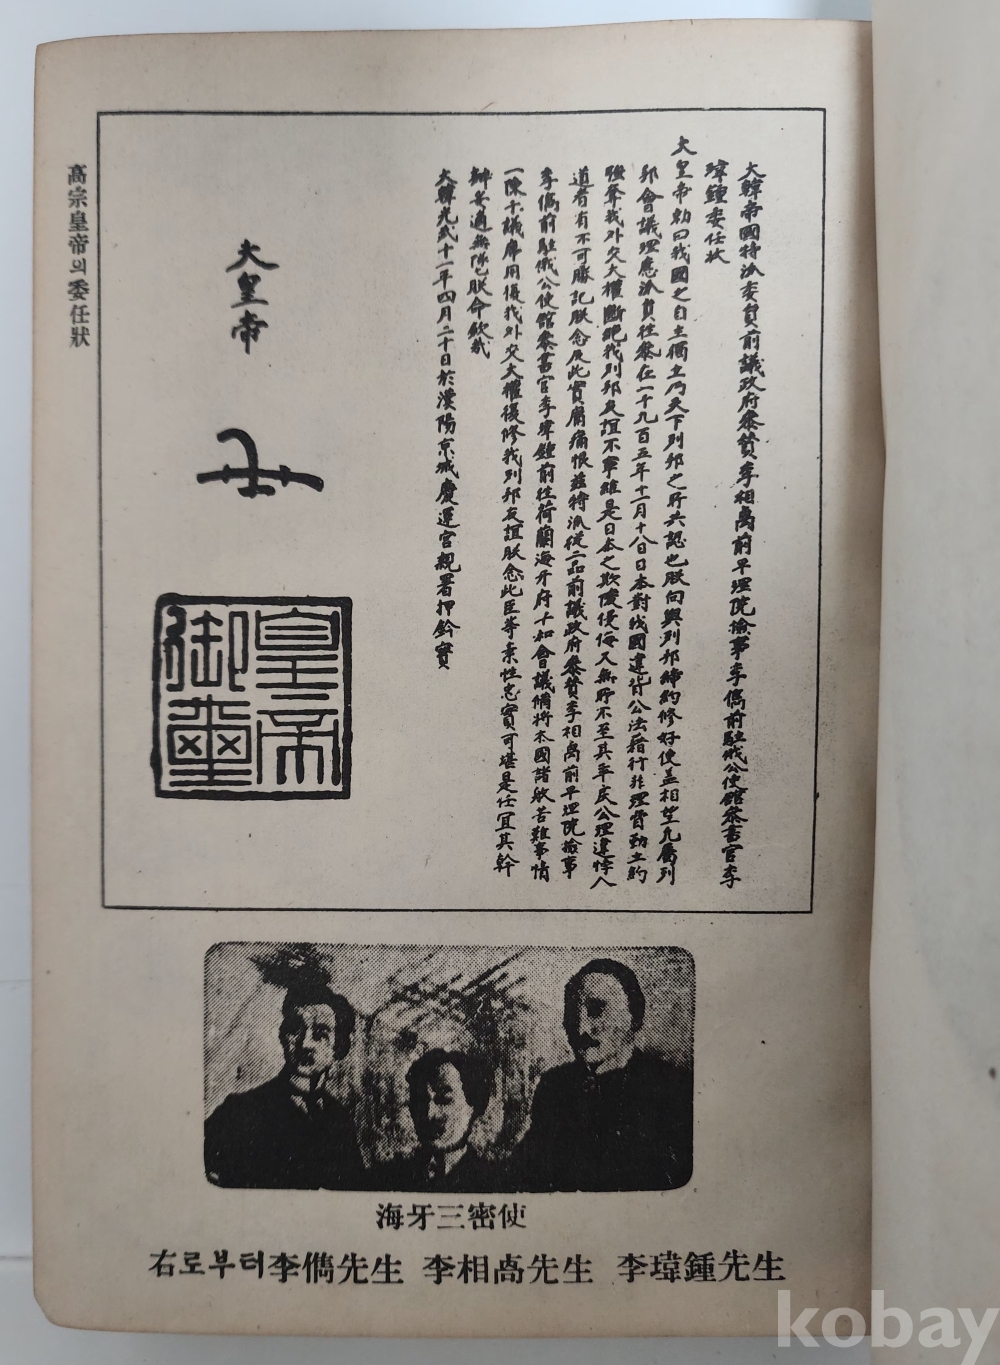 大韓帝國特派委員前議政府參贊李相卨前平理院檢事李儁前駐俄公使館參書官李
瑋鍾委任狀
大皇帝勅曰我國之自主獨立乃天下列邦之所共認也朕向與列邦締約修好使盖相望凡屬列
邦會議理應派員往參在一千九百五年十一月十八日日本對我國違背公法藉行非理脅勒立約
強奪我外交大權斷絶我列邦友誼不寧維是日本之欺凌侵侮又無所不至其乖戾公理違悖人
道者有不可勝記朕念及此實屬痛恨玆特派從二品前議政府參贊李相卨前平理院檢事
李儁前駐俄公使館參書官李瑋鍾前往荷蘭海牙府平和會議備將本國諸般苦難事情
一陳于議席用復我外交大權復修我列邦友誼朕念此臣等素性忠實可堪是任宜其幹
辦妥適無隊也朕命欽哉
大韓光武十一年四月二十日於漢陽京城慶運宮親署押鈐寶
大皇帝
皇帝
御璽
高宗皇帝의 委任狀
海牙三密使
右로부터李儁先生 李相卨先生 李瑋鍾先生
kobay